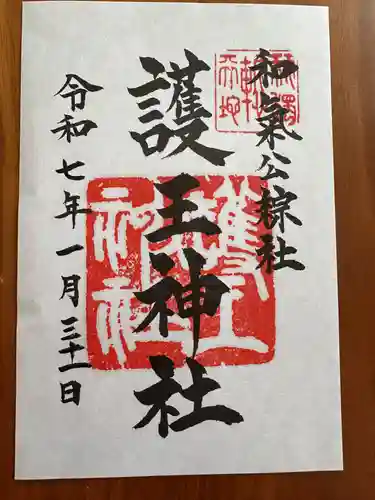 和氣公綜社
護王神社
令和七年一月三十一日
護王神社